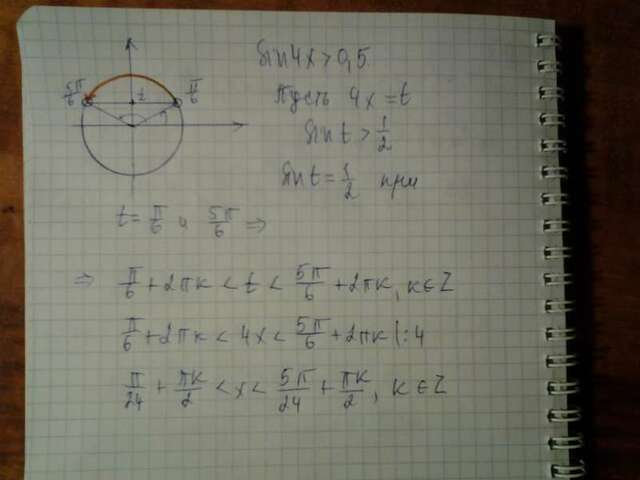 5π/6 t π/6
sin4x>0,5
Пусть 4x=t
sin t > 1/2
sin t = 1/2 при
t = π/6 и 5π/6 ⇒
⇒ π/6 + 2πк < t < 5π/6 + 2πк, к∈Z
π/6 + 2πк < 4x < 5π/6 + 2πк |:4
π/24 + πк/2 < x < 5π/24 + πк/2, к∈Z